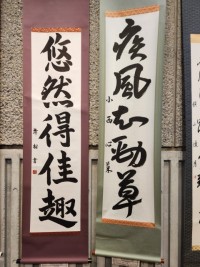 疾風知勁草
小西心菜
悠然得佳趣